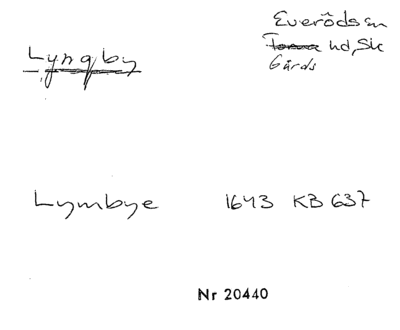 Everöds sn
Lyngby
Torna hd, Sk
Gärds
Lymbye 1643 KB 637
Nr 20440